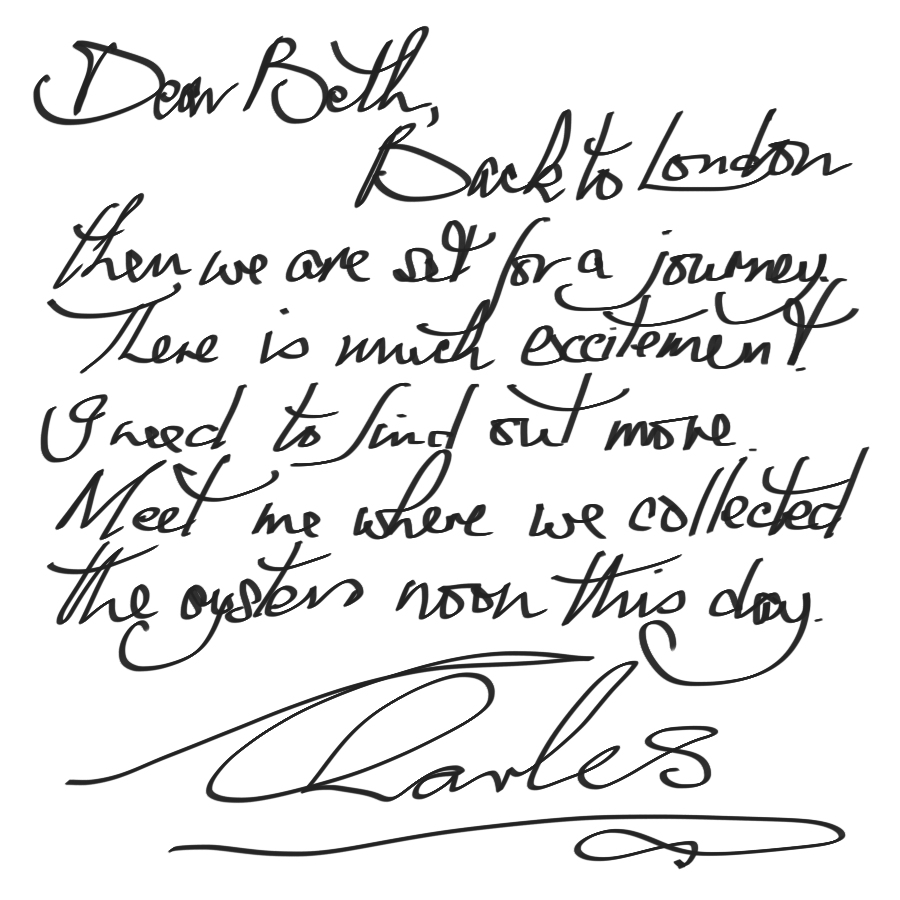 Dear Beth,
Back to London
then we are set for a journey.
There is much excitement!
I need to find out more.
Meet me where we collected
the oysters noon this day.
Charles